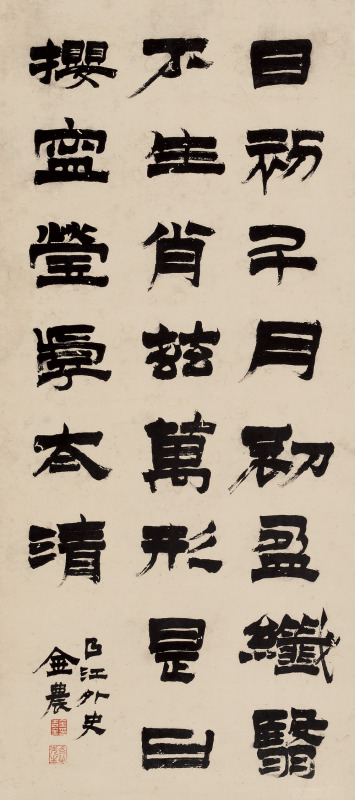 日初升月初盈纖翳
不生肖茲萬形是曰
攖寧瑩乎太清
曲江外史
金農